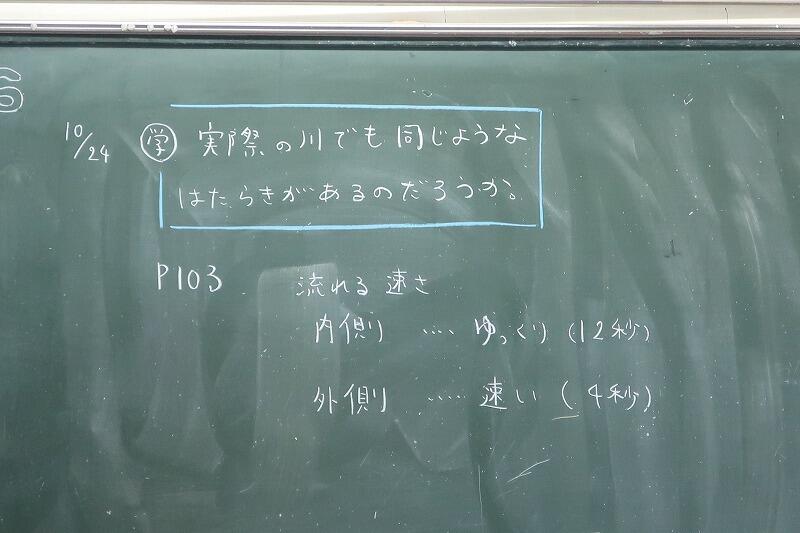 6
10/24 ㊫ 実際の川でも同じような
はたらきがあるのだろうか。
P103 流れる速さ
内側 ‥‥ ゆっくり (12秒)
外側 ‥‥‥ 速い (4秒)